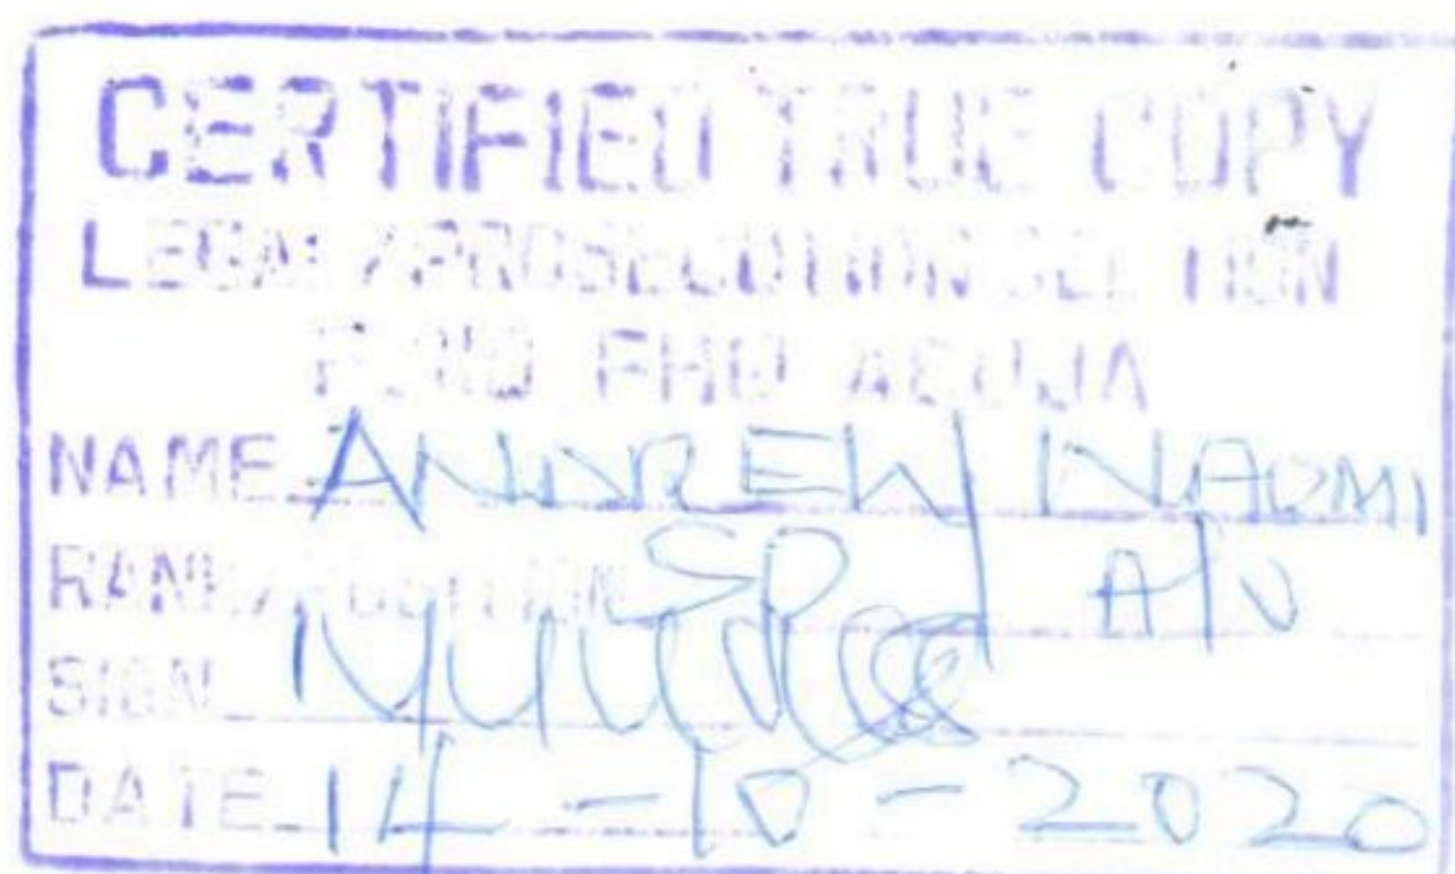 CERTIFIED TRUE COPY
LEGAL/PROSECUTION SECTION
FCIID FHQ ABUJA
NAME ANDREW NAOMI
RANK/POSITION SP
SIGN
DATE 14-10-2020